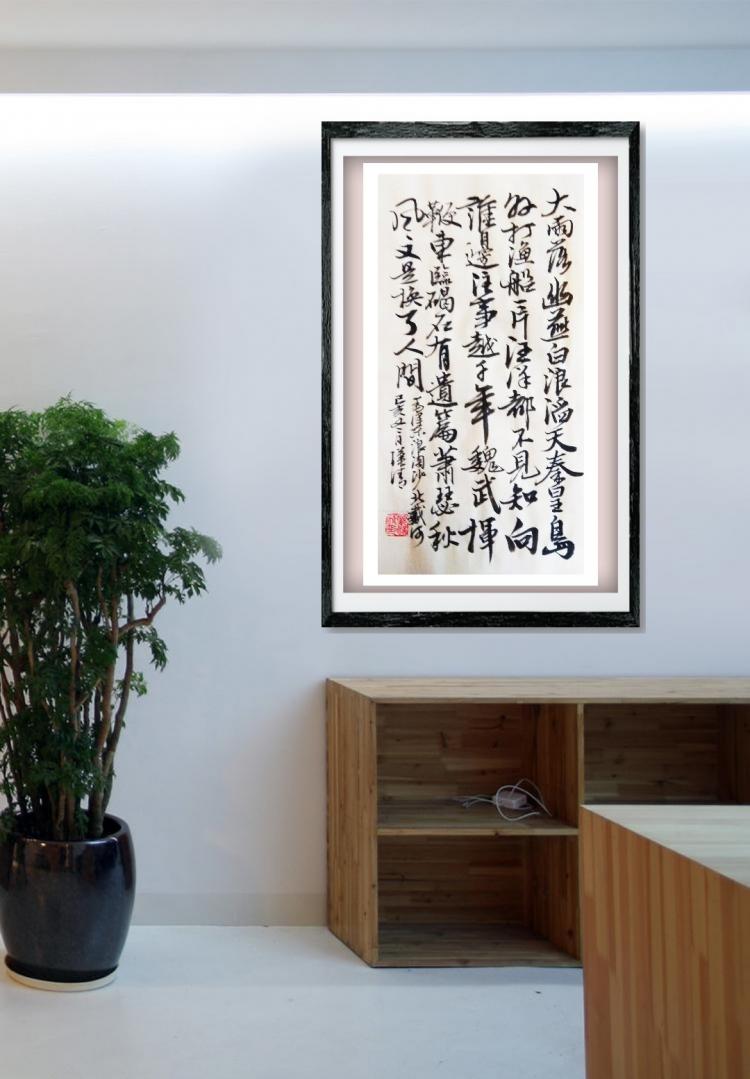 大雨落幽燕白浪滔天秦皇島
外打漁船一片汪洋都不見知向
誰邊往事越千年魏武揮
鞭東臨碣石有遺篇蕭瑟秋
风又是换了人間
浪淘沙北戴河
己亥 月漢清